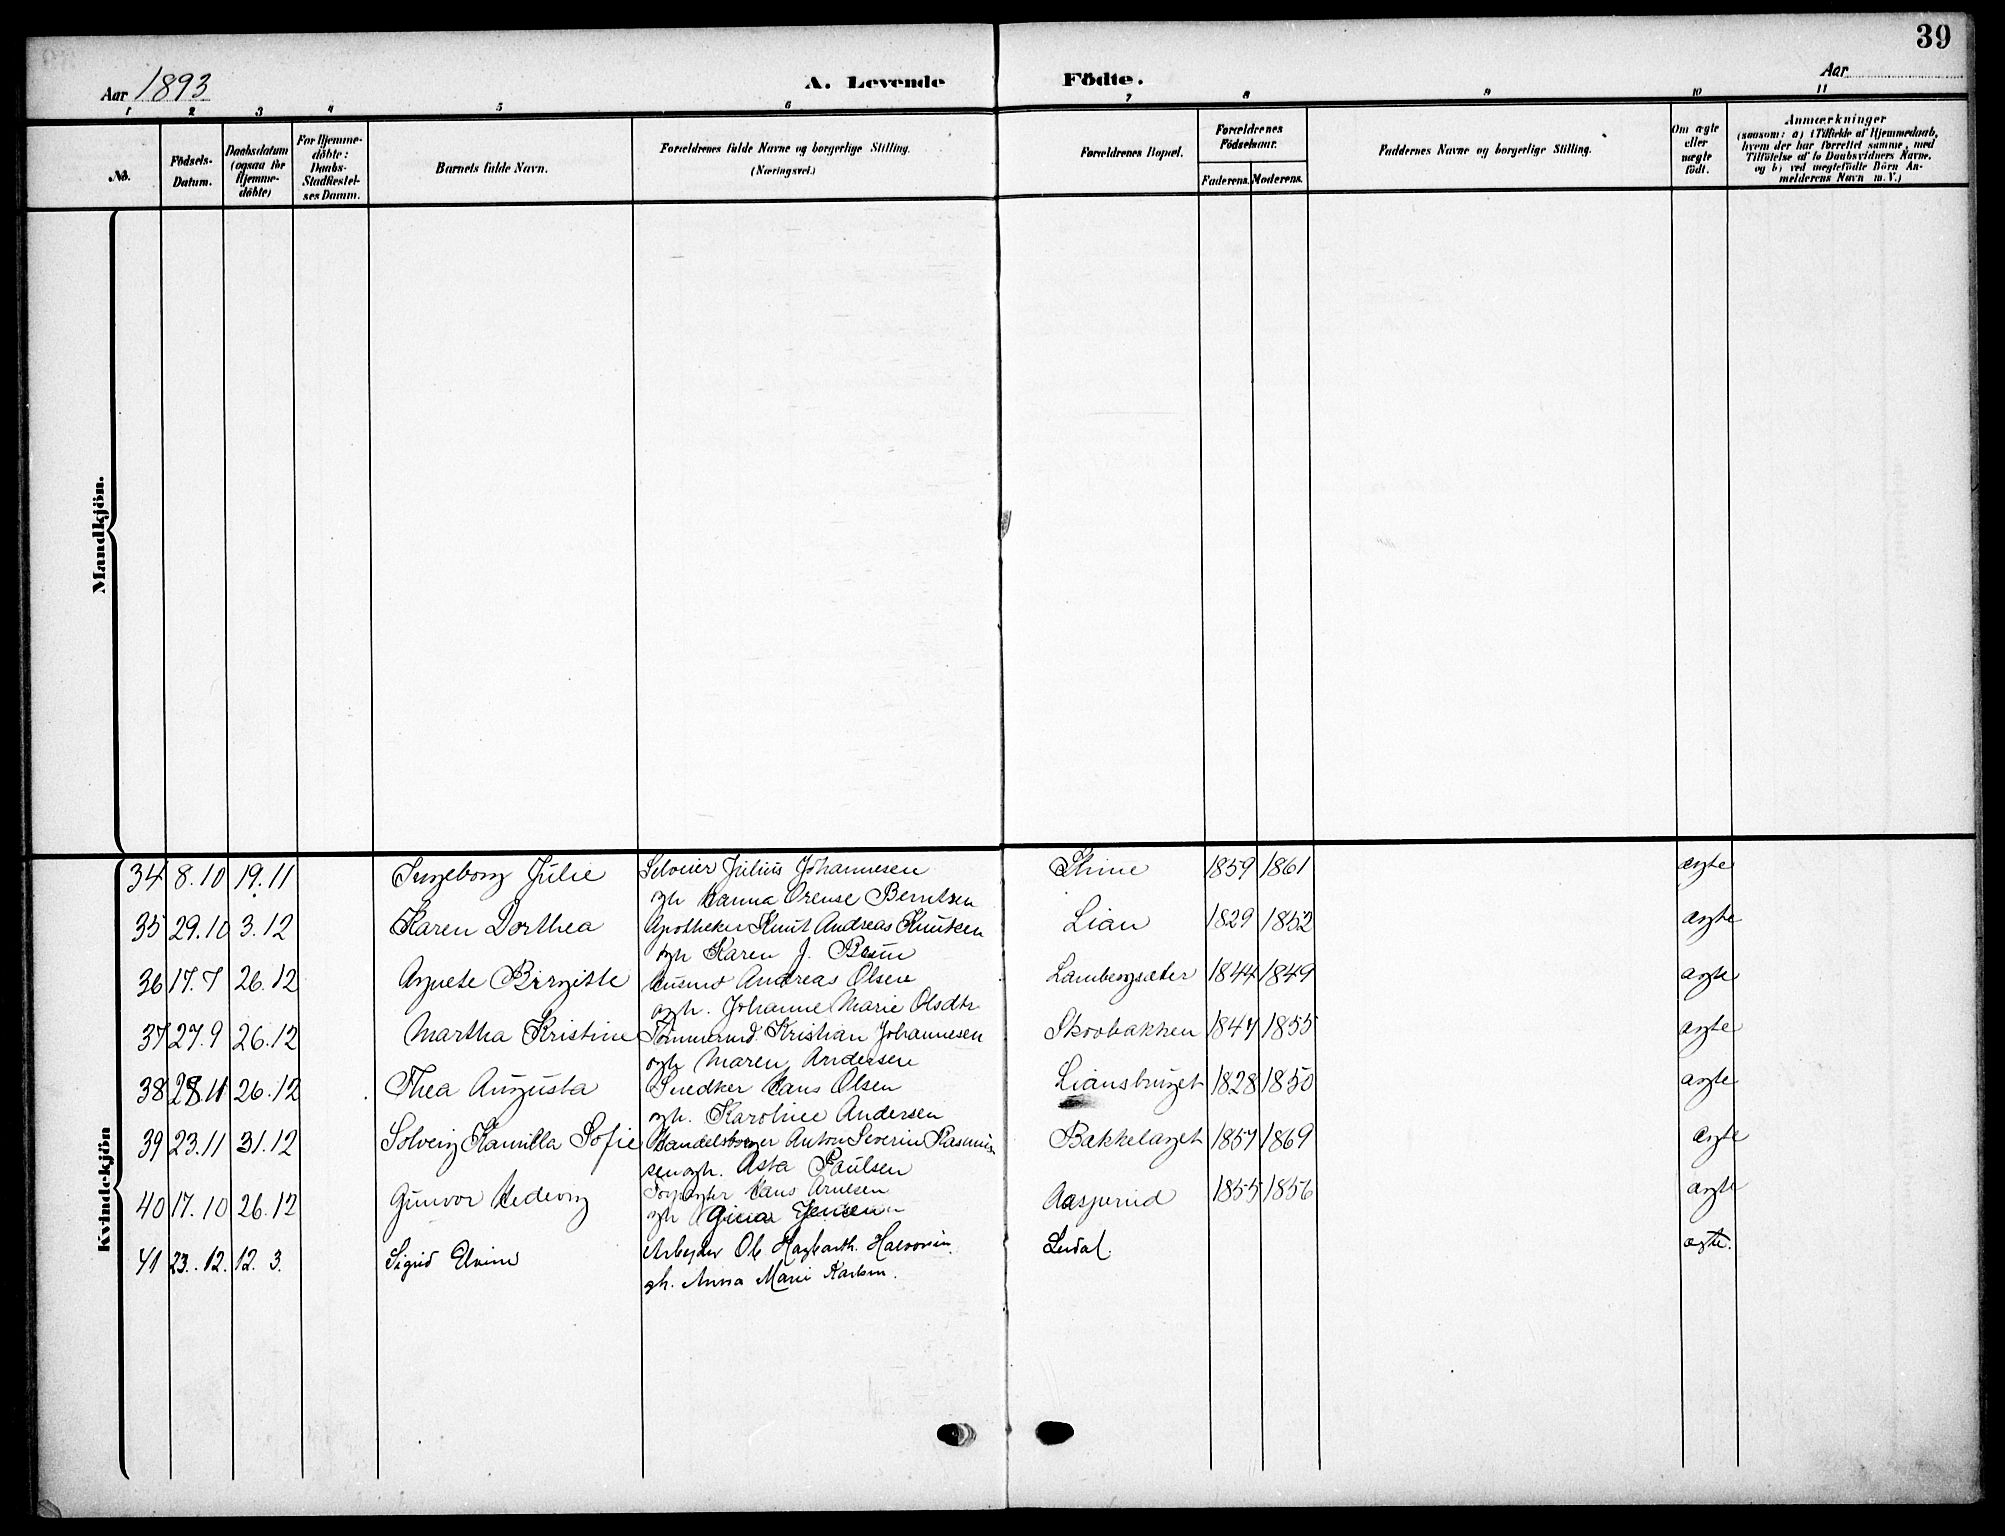 39
Aar 1893
A. Levende Födte.
Aar
1 2 3 4 5 6 7 8 9 10 11
No.
Födsels-
Datum.
Daabsdatum
(ogsaa for
Hjemme-
döbte)
For Hjemme-
döbte:
Daabs-
Stadfæstel-
ses Datum.
Barnets fulde Navn.
Forældrenes fulde Navne og borgerlige Stilling.
(Næringsvei.)
Forældrenes Bopæl.
Forældrenes
Födselsaar.
Faderens. Moderens.
Faddernes Navne og borgerlige Stilling.
Om ægte
eller
uægte
födt.
Anmærkninger
(saasom: a) i Tilfælde af Hjemmedaab,
hvem der har forrettet samme, med
Tilföielse af to Daabsvidners Navne,
og b) ved uegtefödte Börn An-
melderens Navn m. V.)
Mandkjön.
Kvindekjön
34 8.10 19.11 Ingeborg Julie Julius Johannesen 1859 1861 ægte
ogh Hanna Berntsen
35 29.10 3.12 Karen Dorthea Apotheker Knut Andreas Knutsen Lian 1829 1852 ægte
ogh Karen J.
36 17.7 26.12 Agnete Birgitte Husmd Andreas Olsen Lambergsæter 1844 1849 ægte
ogh. Johanne Marie Olsdtr
37 27.9 26.12 Martha Kristine Tømmermd. Kristian Johannesen Skovbakken 1847 1855 ægte
ogh Maren Andersen
38 28.11 26.12 Thea Augusta Snedker Hans Olsen Liansbruget 1828 1850 ægte
ogh. Karoline Andersen
39 23.11 31.12 Solveig Kamilla Sofie Handelsborger Anton Severin Rasmus
sen ogh. Asta Paulsen Bakkelaget 1857 1869 ægte
40 17.10 26.12 Gunvor Hedevig Hans Arnesen Aasjerud 1855 1856 ægte
ogh Gina Jensen
41 23.12. 12.3. Sigrid Elvine Arbejder Ole Hagbarth Halvorsen Lerdal. ægte.
gh. Anna Marie Karlsen.